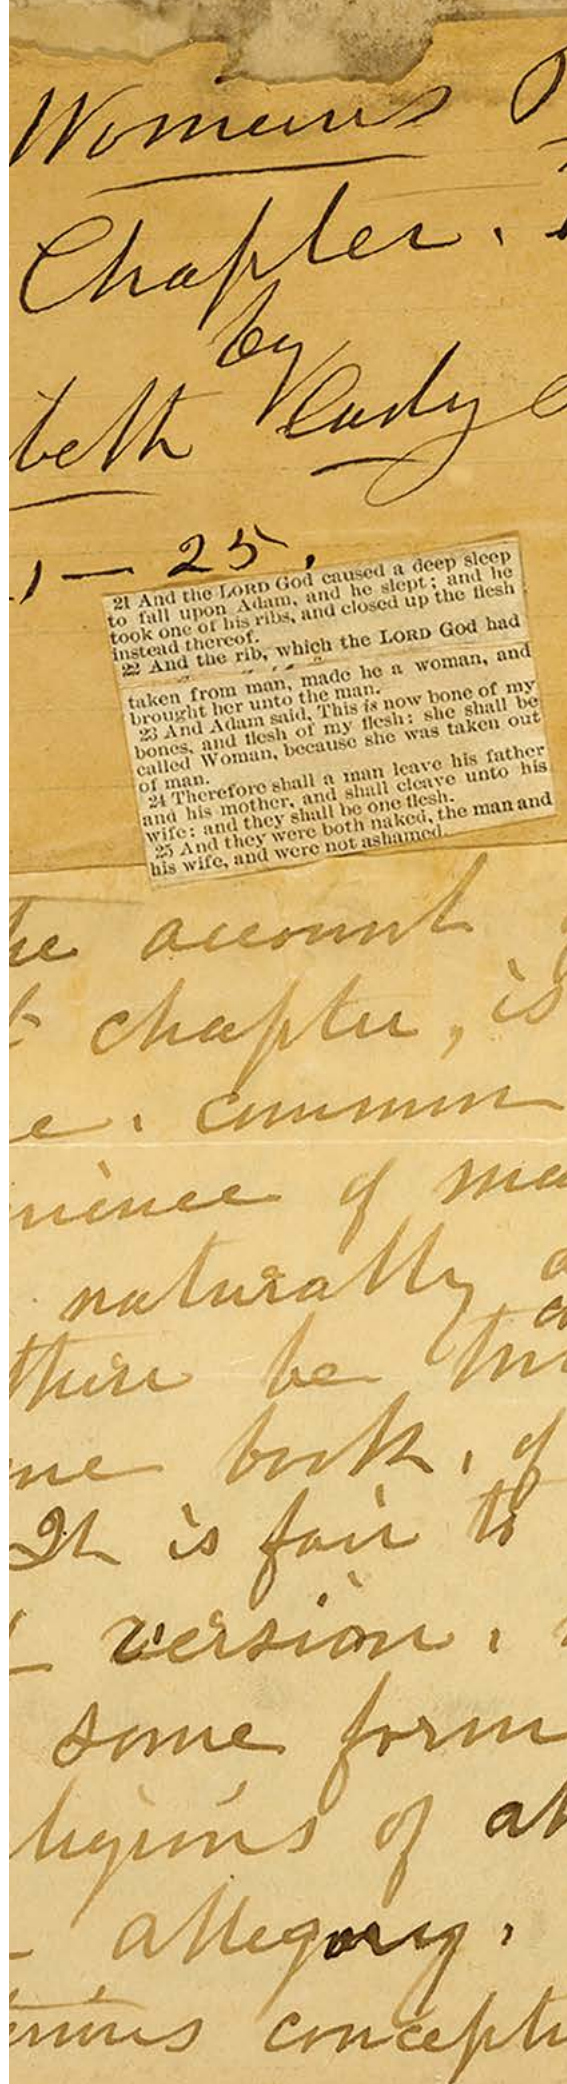 Womans
Chapter.
by
beth Cady
1 — 25.
21 And the LORD God caused a deep sleep
to fall upon Adam, and he slept; and he
took one of his ribs, and closed up the flesh
instead thereof.
22 And the rib, which the LORD God had
taken from man, made he a woman, and
brought her unto the man.
23 And Adam said, This is now bone of my
bones, and flesh of my flesh: she shall be
called Woman, because she was taken out
of man.
24 Therefore shall a man leave his father
and his mother, and shall cleave unto his
wife: and they shall be one flesh.
25 And they were both naked, the man and
his wife, and were not ashamed.
he account
chapter, is
e. common
rience of ma
naturally
there be
me book, of
It is fair to
version,
some form
ligions of al
allegory,
erious concepti